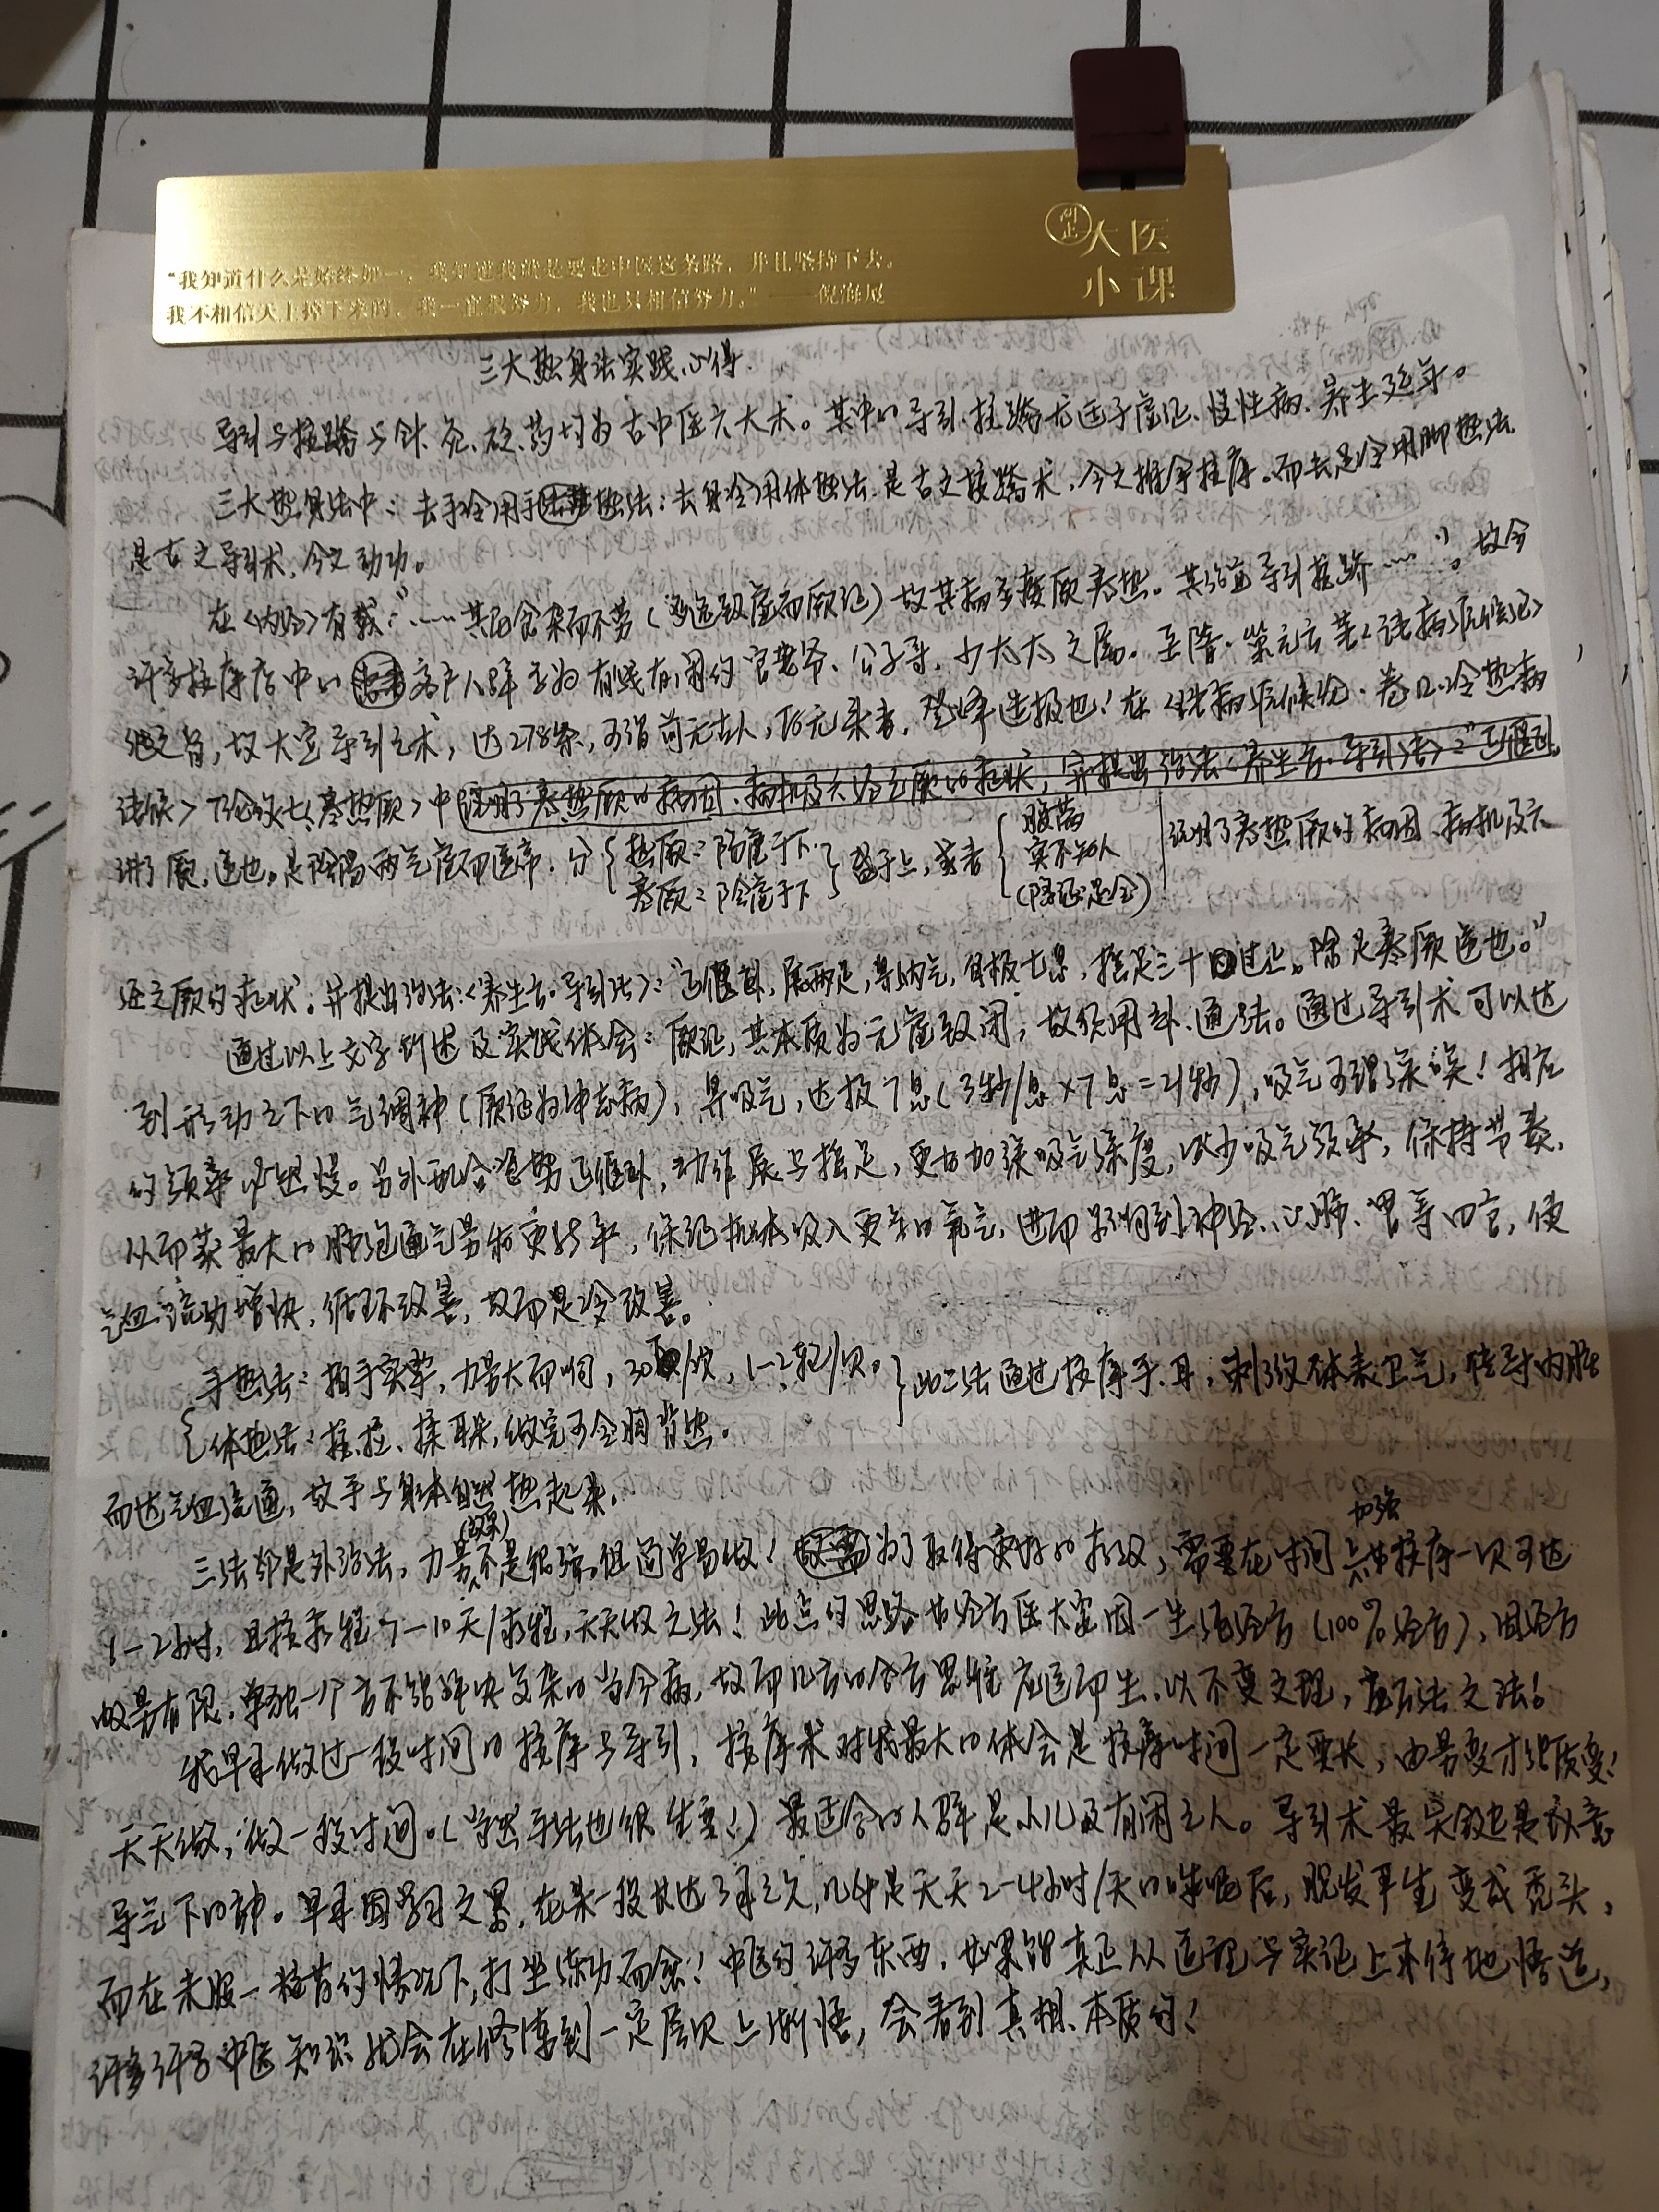 "我知道什么是始终如一，我知道我就是要走中医这条路，并且坚持下去。
我不相信天上掉下来的，我一直很努力，我也只相信努力。"——倪海厦
大医
小课
三大热身法实践心得
导引与按蹻与针、灸、砭、药均为古中医六大术。其中以导引、按蹻尤适于虚证、慢性病、养生延年。
三大热身法中：去手冷用手热法；去身冷用体热法，是古之按蹻术，今之推拿按摩。而去足冷用脚热法
是古之导引术，今之动功。
在《内经》有载："……其民食杂而不劳（过逸致虚而厥证）故其病多痿厥寒热。其治宜导引按蹻……"。故今
许多按摩店中以客户人群多为有钱有闲的官老爷、公子哥、少太太之属。至隋·巢元方著《诸病源候论》
继之旨，故大宣导引之术，达278条，可谓前无古人，后无来者，登峰造极也！在《诸病源候论·卷12·冷热病
诸候》下论的七《寒热厥》中
讲了厥，逆也。是阴阳两气虚而逆常，分
热厥：阳虚于下
寒厥：阴虚于下
盛于上，害者
腹满
突不知人
说明了寒热厥的病因、病机及六
经之厥的症状。并提出治法：《养生方·导引法》："正偃卧，展两足，鼻纳气，自极七息，摇足三十过止。除足寒厥逆也。"
通过以上文字所述及实践体会：厥证，其本质为元虚致闭，故须用补、通法。通过导引术可以达
到形动之下以气调神（厥证为神志病），鼻吸气，达极7息（3秒/息×7息=21秒），吸气可谓深矣！相应
的频率必然慢。另外配合姿势正偃卧，动作展与摇足，更加加深吸气深度，减少吸气频率，保持节奏，
从而获最大的肺泡通气量和更新率，保证机体吸入更多的氧气，进而影响到神经、心肺、胃等四言，使
气血流动增快，循环改善，故而足冷改善。
手热法：拍手实掌，力量大而响，30次，1-2轮/次。
体热法：按、拉、揉耳朵，做完可全胸背热。
此二法通过按摩手、耳，刺激体表卫气，传导内脏
而达气血流通，故手与身体自然热起来。
三法都是外治法，力量(效果)不是很强，但简单易做！为了取得更好的疗效，需要在时间上加强按摩一次可达
1-2小时，且按疗程7-10天/疗程，天天做之法！此点的思路如经方医大家因一生活经方（100%经方），因经方
以量有限，单独一个方不能解决复杂的当今病，故而几方的合方思维应运而生。以不变之理，应万法之法！
我早年做过一段时间的按摩与导引，按摩术对我最大的体会是按摩时间一定要长，由量变才能质变！
天天做，做一段时间。（当然手法也很重要！）最适合的人群是小儿及有闲之人。导引术最关键是以意
导气下的静。早年因学习之累，在某一段长达3年之久，几乎是天天2-4小时/天的睡眠后，脱发平生变成秃头，
而在未服一粒药的情况下，打坐练功而愈！中医的许多东西，如果能真正从医理与实证上来体地悟道，
许多许多中医知识就会在修炼到一定层次上渐悟，会看到真相、本质的！